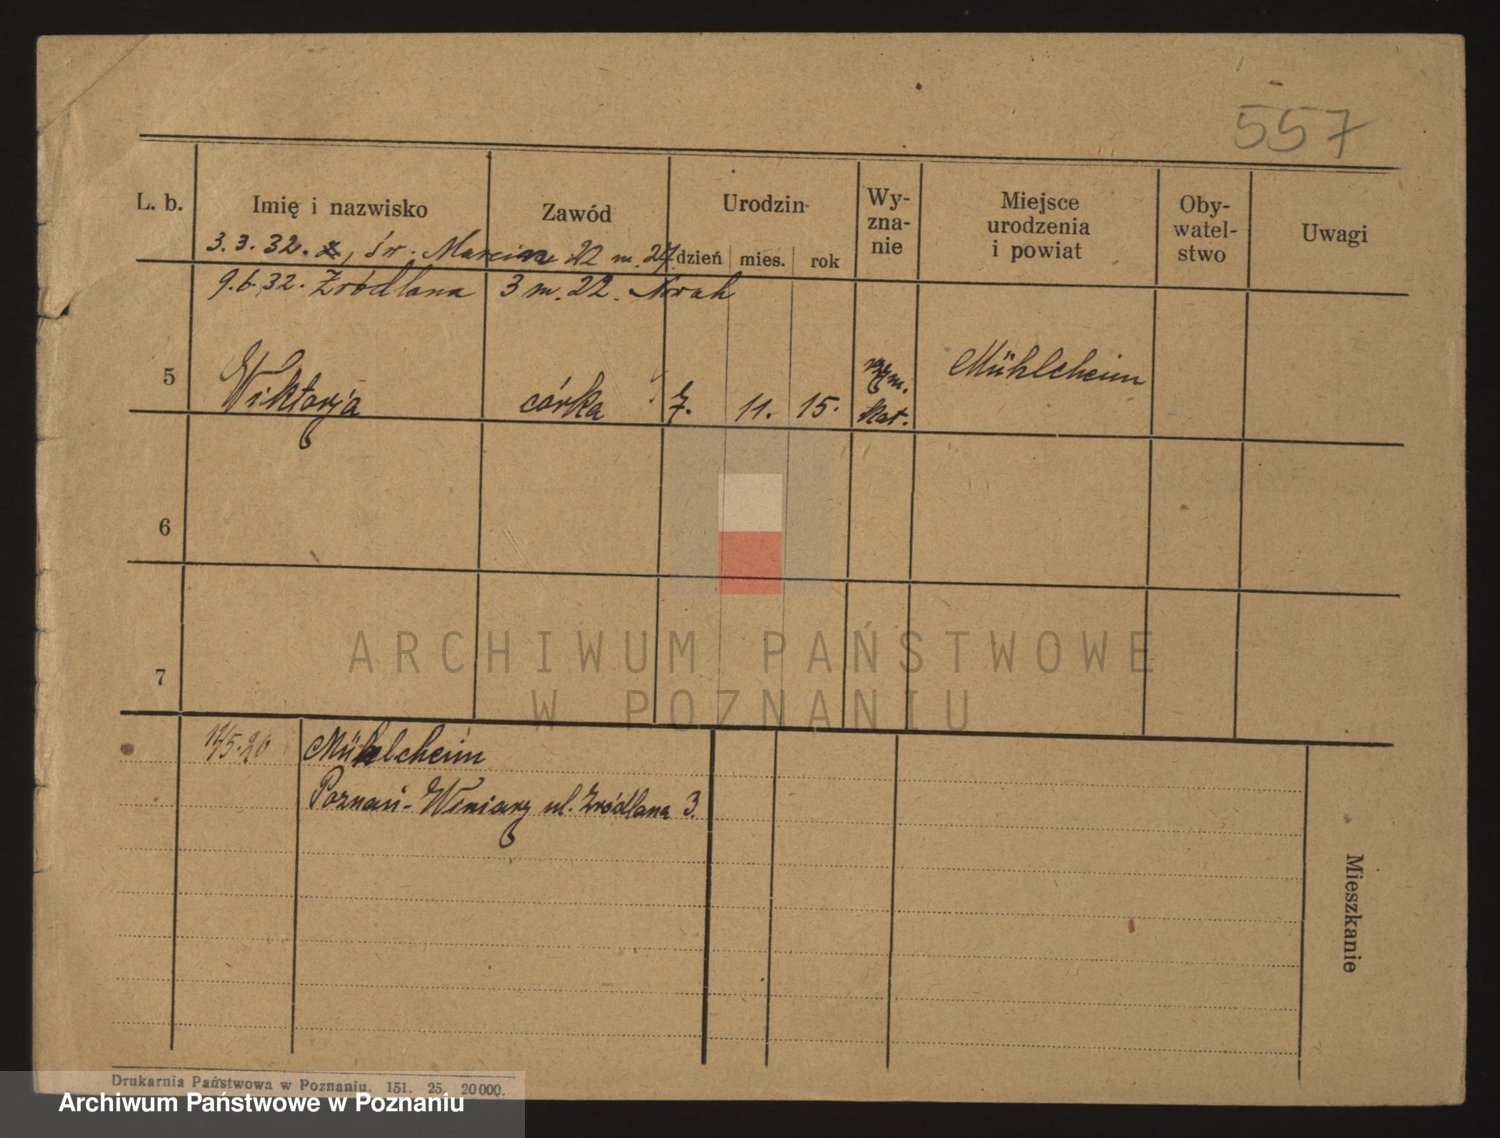 557
L. b. Imię i nazwisko Zawód Urodzin Wy-zna-nie Miejsce urodzenia i powiat Oby-watel-stwo Uwagi
dzień mies. rok
3.3.32. św. Marcin 22 m. 27.
9.6.32. Źródlana 3 m. 22. Nowak
5 Wiktorja córka 7. 11. 15. rzym. kat. Mühlcheim
6
7
ARCHIWUM PAŃSTWOWE
W POZNANIU
5.20 Mühlcheim
Poznań-Winiary ul. Źródlana 3.
Mieszkanie
Drukarnia Państwowa w Poznaniu. 151. 25. 20000.
Archiwum Państwowe w Poznaniu